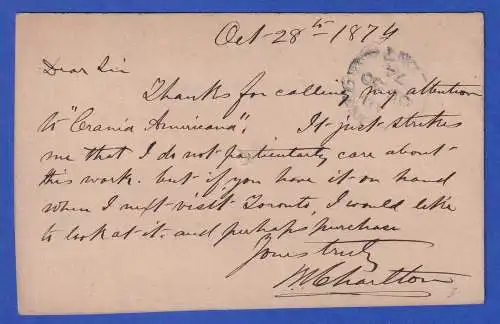 Oct 28th 1874
Dear Sir
Thanks for calling my attention
to "Crania Americana". It just strikes
me that I do not particularly care about
this work. but if you have it on hand
when I next visit Toronto, I would like
to look at it. and perhaps purchase
Yours truly
Charlton